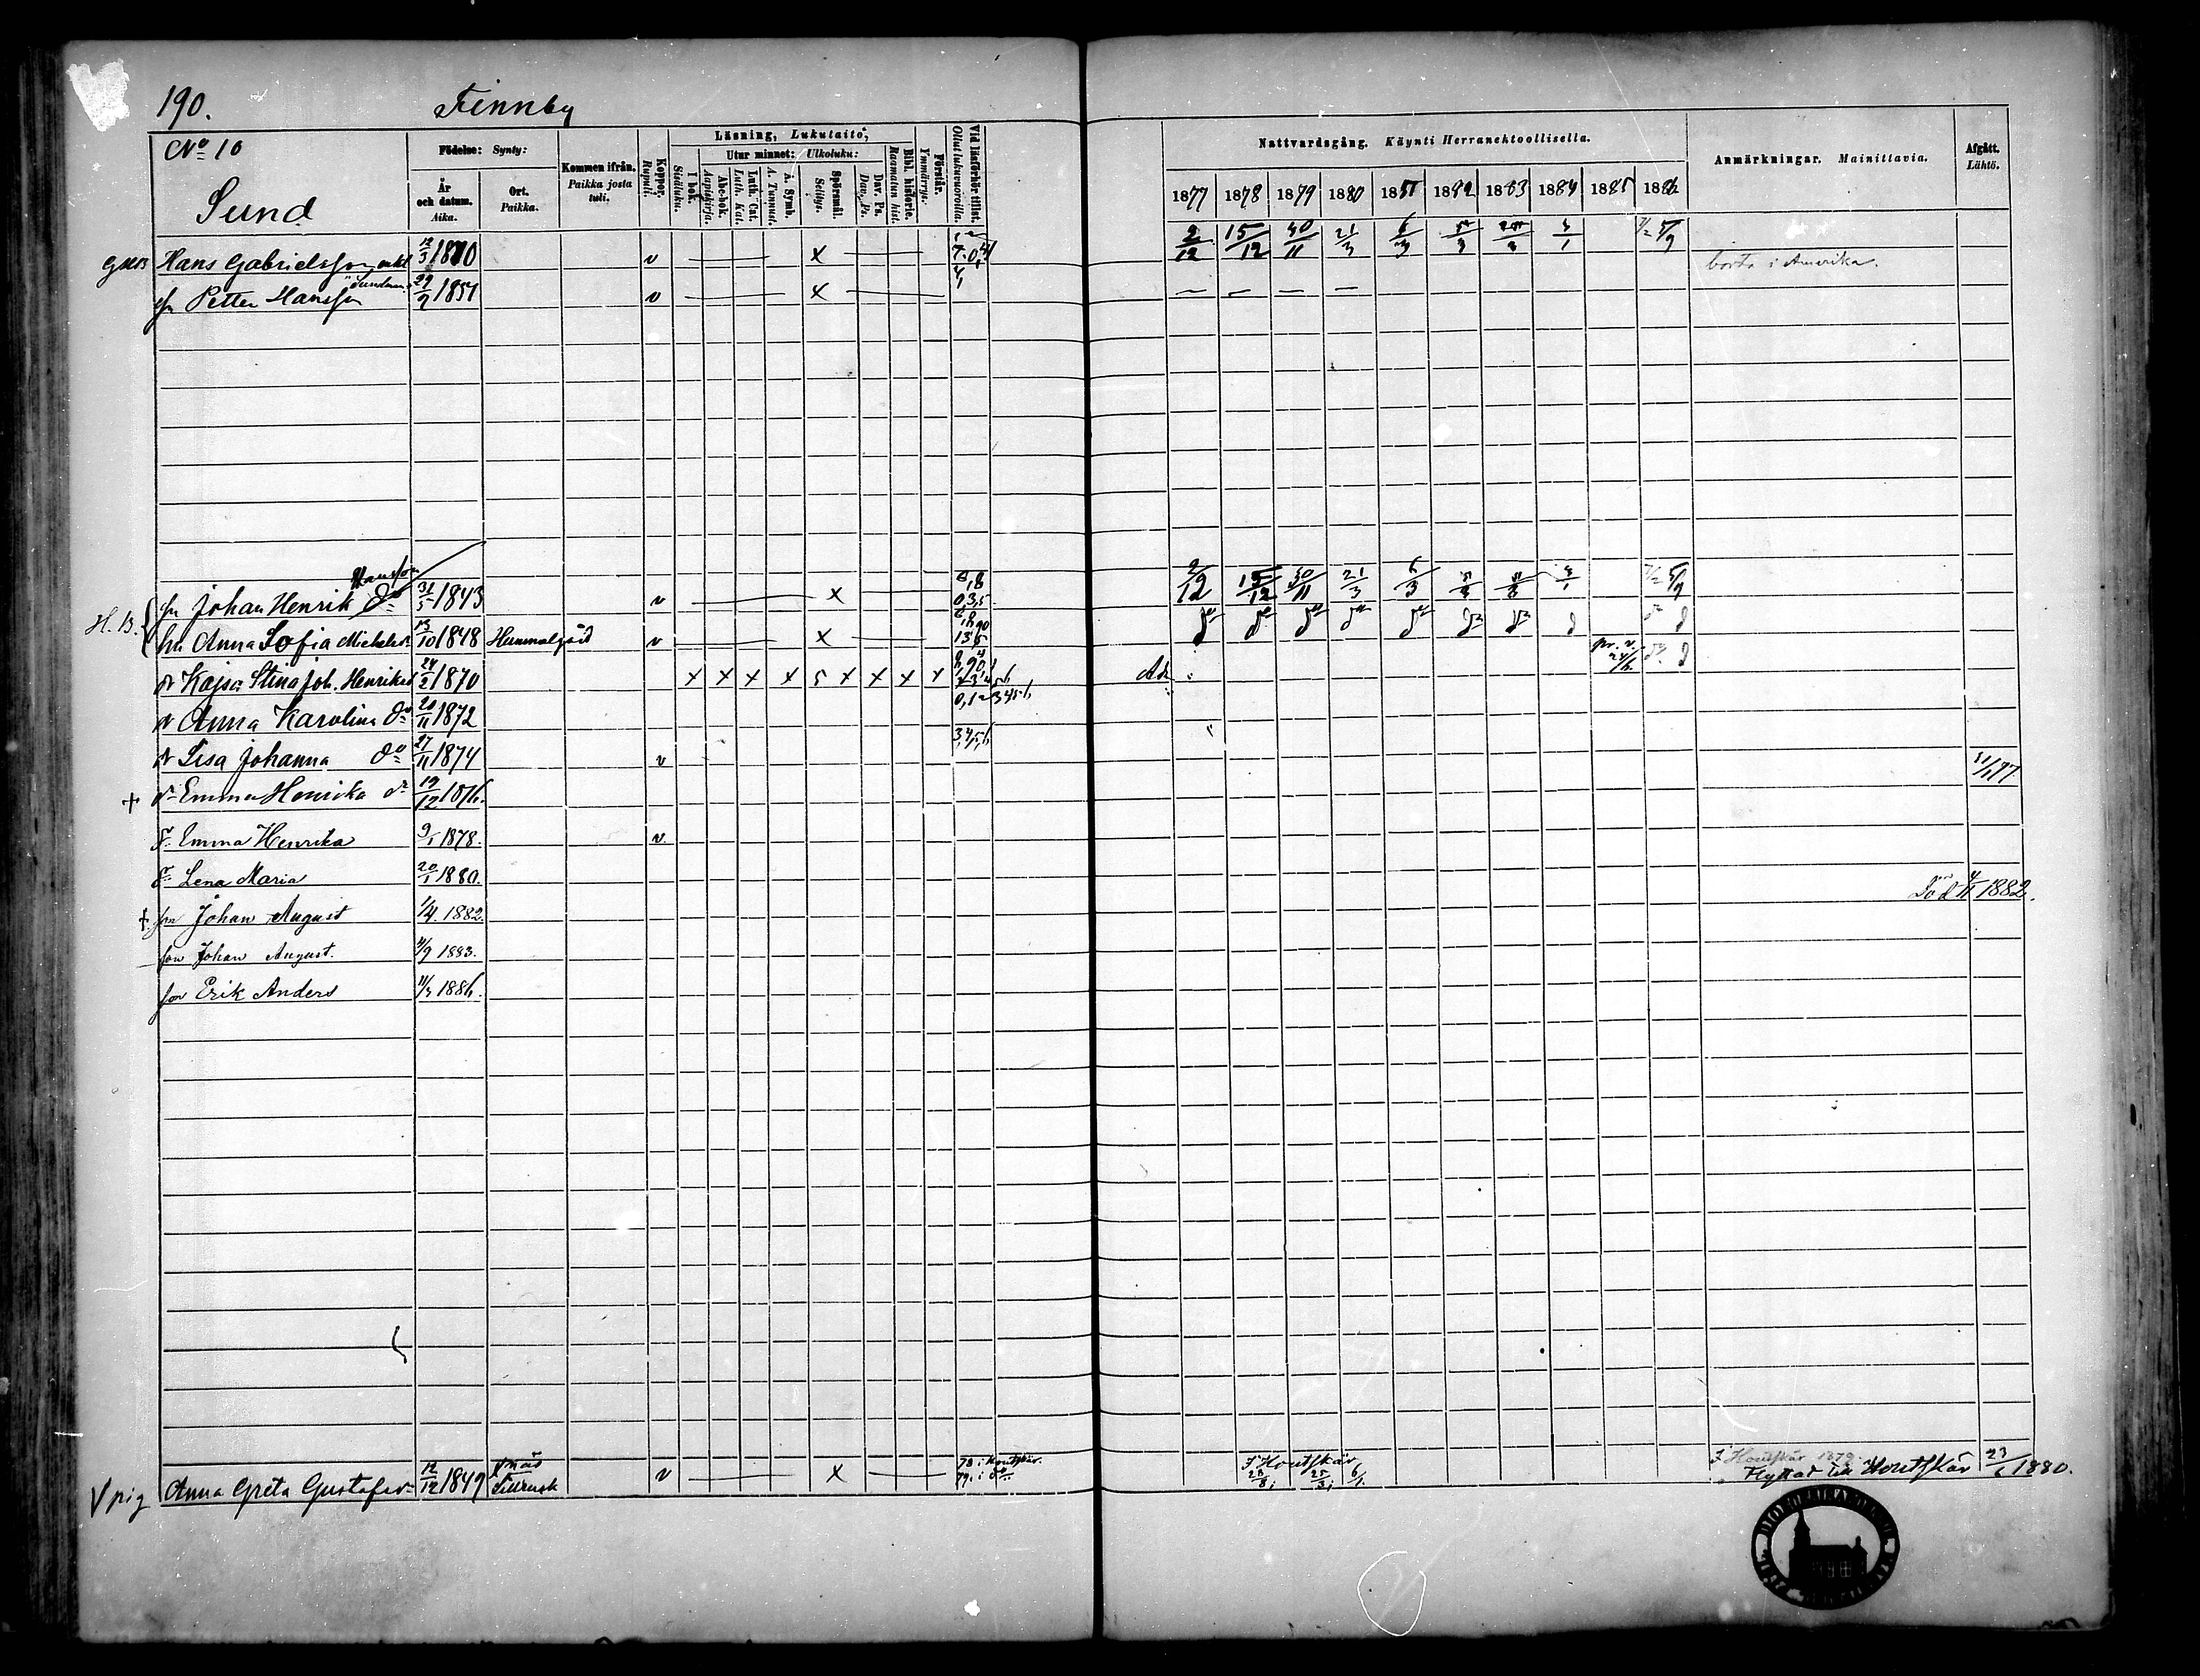 190. Finnby
No 10
Sund
Födelse: Synty:
År och datum. Aika.
Ort. Paikka.
Kommen ifrån. Paikka josta tuli.
Koppor. Rupuli.
Läsning, Lukutaito,
I bok. Sisäluku.
Utur minnet: Ulkoluku:
Abc-bok. Aapiskirja.
Luth. Cat. Luth. Kat.
A. Symb. A. Tunnust.
Spörsmål. Selitys.
Dav. Ps. Dav. Ps.
Bibl. historie. Raamatun hist.
Förstår. Ymmärrys.
Vid läsförhör tillst. Ollut lukuvuoroilla.
Nattvardsgång. Käynti Herranehtoollisella.
1877 1878 1879 1880 1881 1882 1883 1884 1885 1886
Anmärkningar. Mainittavia.
Afgått. Lähtö.
Hans Gabrielsson enkl 12/3 1810 v x 2/12 15/12 30/11 21/3 6/3
sn Petter Hansson Sundman 29/9 1857 v x — — — — borta i Amerika.
H. B. sn Johan Henrik Hansson do 31/5 1843 v x 2/12 15/12 30/11 21/3 6/3
hu Anna Sofia Michelsdr 13/10 1848 v x
dr Kajsa Stina Joh. Henriksd 24/2 1870 x x x x 5 x x x x
dr Anna Karolina do 20/11 1872
dr Lisa Johanna do 27/11 1874 v
+ dr Emma Henrika do 19/12 1876.
dr Emma Henrika 1878. v.
dr Lena Maria 20/1 1880.
+ sn Johan August 1/4. 1882. Död 4/11 1882.
son Johan August. 1883.
son Erik Anders 1886.
V pig Anna Greta Gustafsdr 12/12 1849 v x 78. i Houtskär. 79. i do I Houtskär
I Houtskär 1878.
Flyttat till Houtskär 23/6 1880.